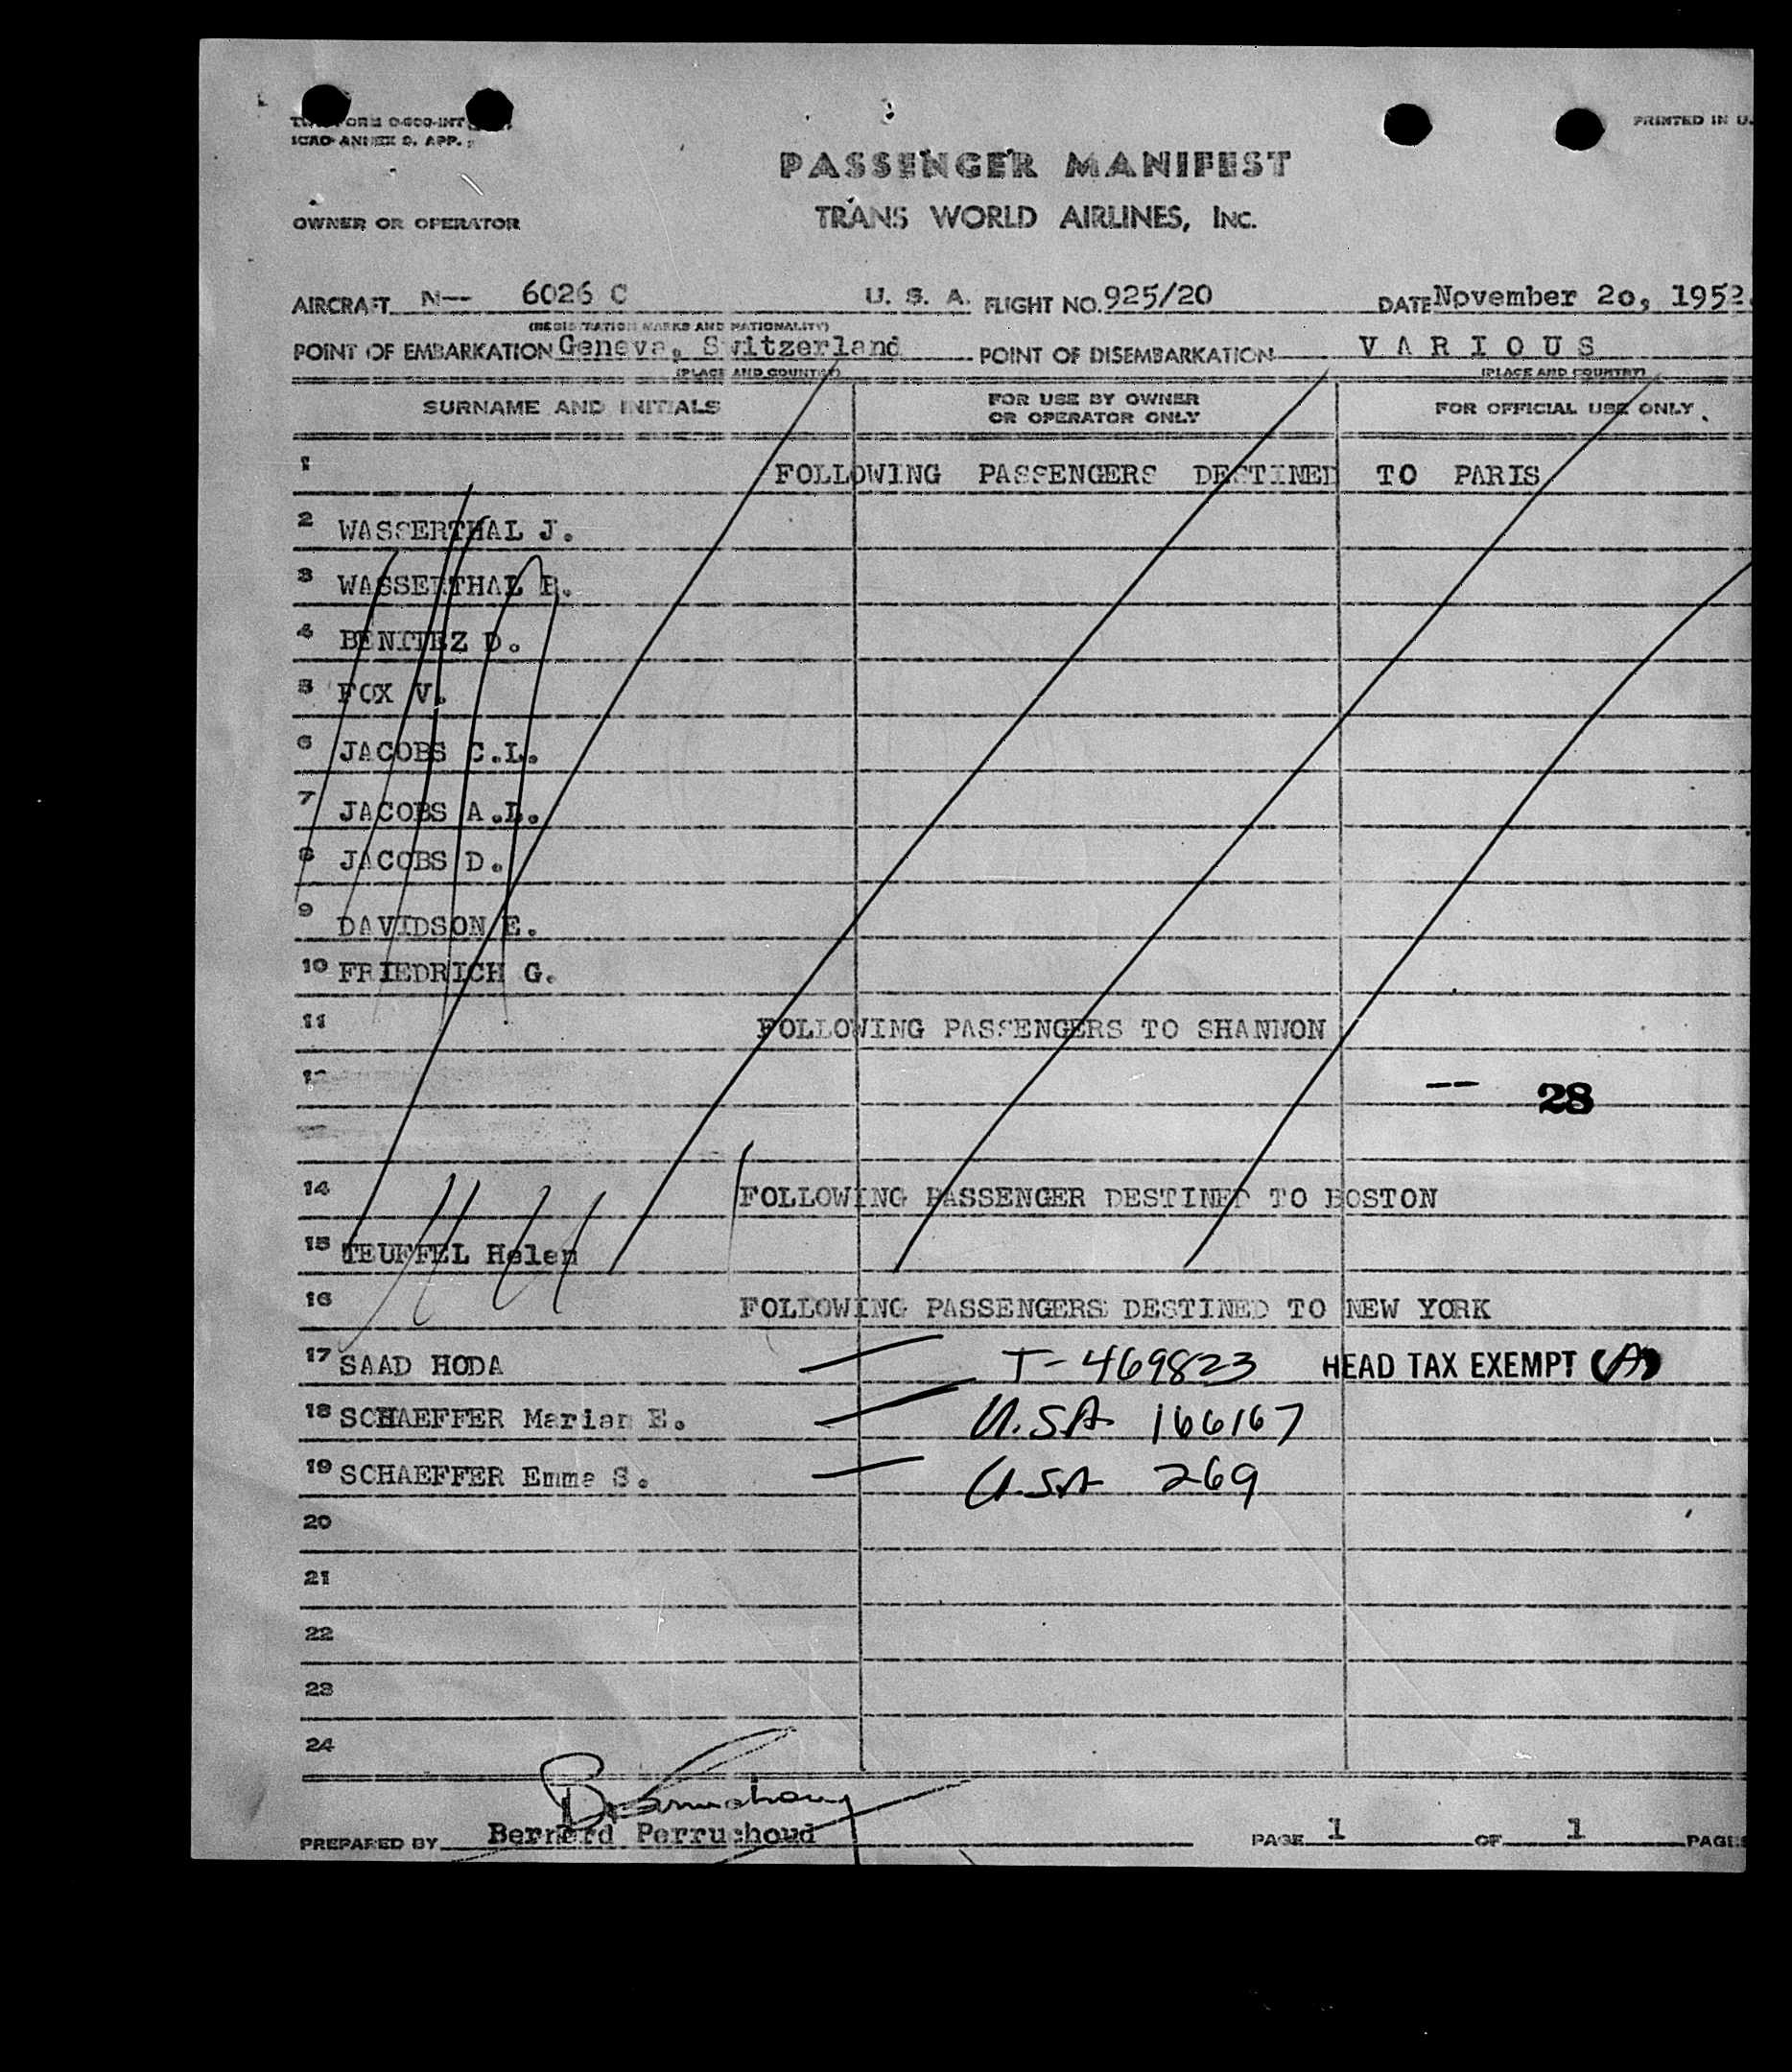 TWA FORM O-600-INT
ICAO ANNEX 9, APP.
PRINTED IN U.
PASSENGER MANIFEST
OWNER OR OPERATOR
TRANS WORLD AIRLINES, INC.
AIRCRAFT N-- 6026 C U. S. A. FLIGHT NO. 925/20 DATE November 2o, 1952.
(REGISTRATION MARKS AND NATIONALITY)
POINT OF EMBARKATION Geneva, Switzerland POINT OF DISEMBARKATION VARIOUS
(PLACE AND COUNTRY) (PLACE AND COUNTRY)
SURNAME AND INITIALS FOR USE BY OWNER OR OPERATOR ONLY FOR OFFICIAL USE ONLY
1 FOLLOWING PASSENGERS DESTINED TO PARIS
2 WASSERTHAL J.
3 WASSERTHAL
4 BENITEZ D.
5 FOX V.
6 JACOBS C.L.
7 JACOBS A.L.
8 JACOBS D.
9 DAVIDSON E.
10 FRIEDRICH G.
11 FOLLOWING PASSENGERS TO SHANNON
12
-- 28
14 FOLLOWING PASSENGER DESTINED TO BOSTON
15 TEUFFEL Helen
16 FOLLOWING PASSENGERS DESTINED TO NEW YORK
17 SAAD HODA T-469823 HEAD TAX EXEMPT (A)
18 SCHAEFFER Marian E. U.SA 166167
19 SCHAEFFER Emma S. U.SA 269
20
21
22
23
24
PREPARED BY Bernard Perruchoud PAGE 1 OF 1 PAGES